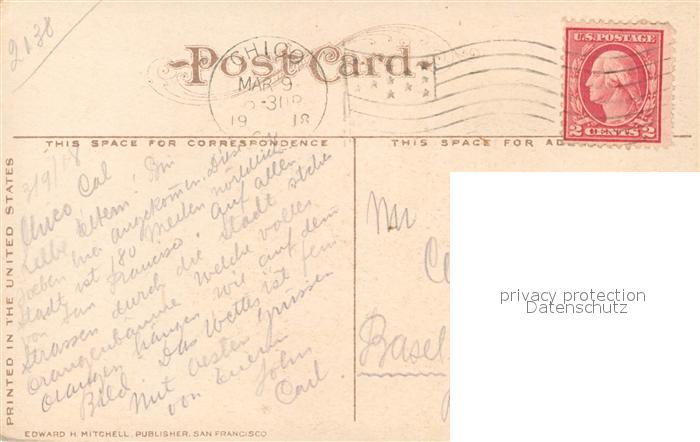 2138
Post Card
CHICO
MAR 9
1918
U.S. POSTAGE
2 CENTS 2
THIS SPACE FOR CORRESPONDENCE
THIS SPACE FOR AD
3/9/18
Chico Cal
Liebe Eltern! Bin
soeben hier angekommen. Diese
Stadt ist 180 Meilen nördlich
von San Francisco. Auf allen
Strassen durch die Stadt stehen
Orangenbäume welche voller
Orangen hängen wie auf dem
Bild. Das Wetter ist fein
Mit besten Grüssen
von Eurem
Sohn
Carl
Mr
Basel
privacy protection
Datenschutz
PRINTED IN THE UNITED STATES
EDWARD H. MITCHELL, PUBLISHER, SAN FRANCISCO